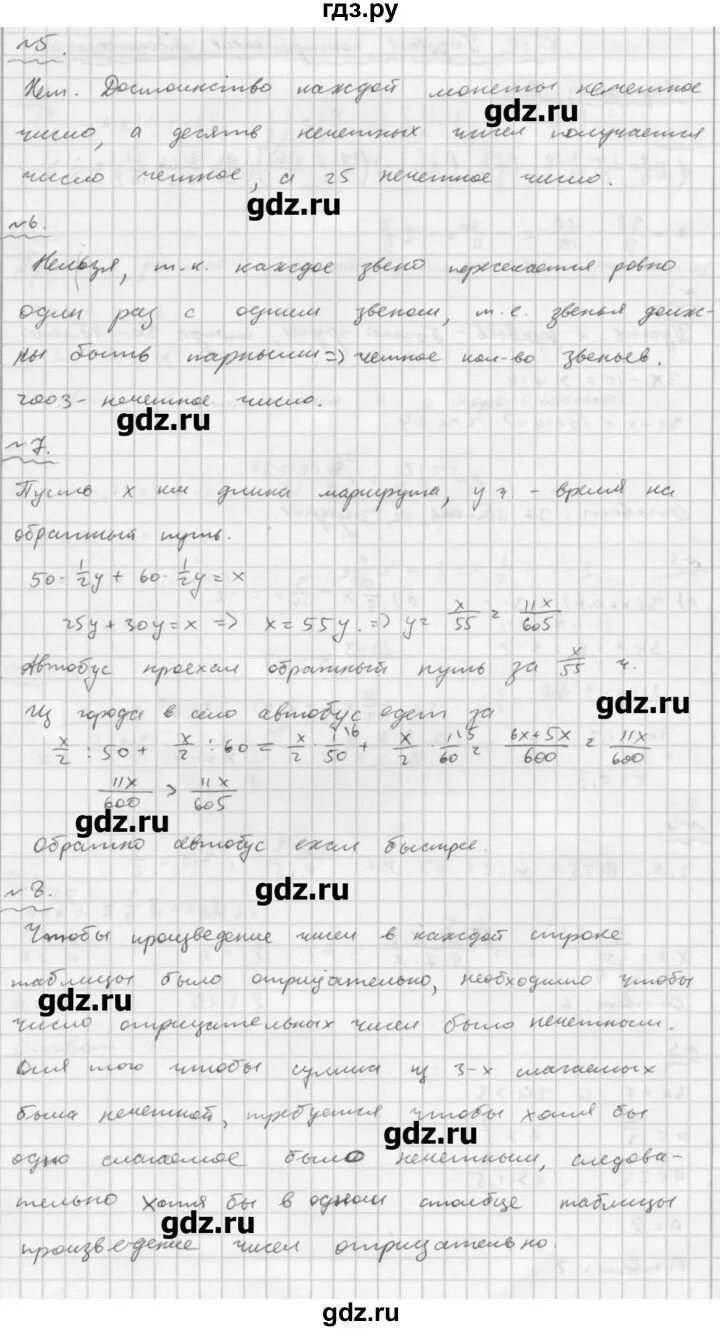 гдз.ру
№5.
Нет. Достоинство каждой монеты нечетное
gdz.ru
число, а десять нечетных чисел получается
число четное, а 25 нечетное число.
gdz.ru
№6.
Нельзя, т.к. каждое звено пересекается ровно
один раз с одним звеном, т.е. звенья долж-
ны быть парными => четное кол-во звеньев.
2003 - нечетное число.
gdz.ru
№7.
Пусть x км длина маршрута, y ч. - время на
обратный путь.
50 · 1/2 y + 60 · 1/2 y = x
25y + 30y = x => x = 55y. => y = x/55 = 11x/605
Автобус проехал обратный путь за x/55 ч.
gdz.ru
Из города в село автобус едет за
x/2 : 50 + x/2 : 60 = x/2 · 1/50 + x/2 · 1/60 = 6x+5x/600 = 11x/600
11x/600 > 11x/605
gdz.ru
Обратно автобус ехал быстрее.
gdz.ru
№8.
Чтобы произведение чисел в каждой строке
таблицы было отрицательно, необходимо чтобы
gdz.ru
число отрицательных чисел было нечетным.
Для того чтобы сумма из 3-х слагаемых
была нечетной, требуется чтобы хотя бы
gdz.ru
одно слагаемое было нечетным, следова-
тельно хотя бы в одном столбце таблицы
gdz.ru
произведение чисел отрицательно.
gdz.ru